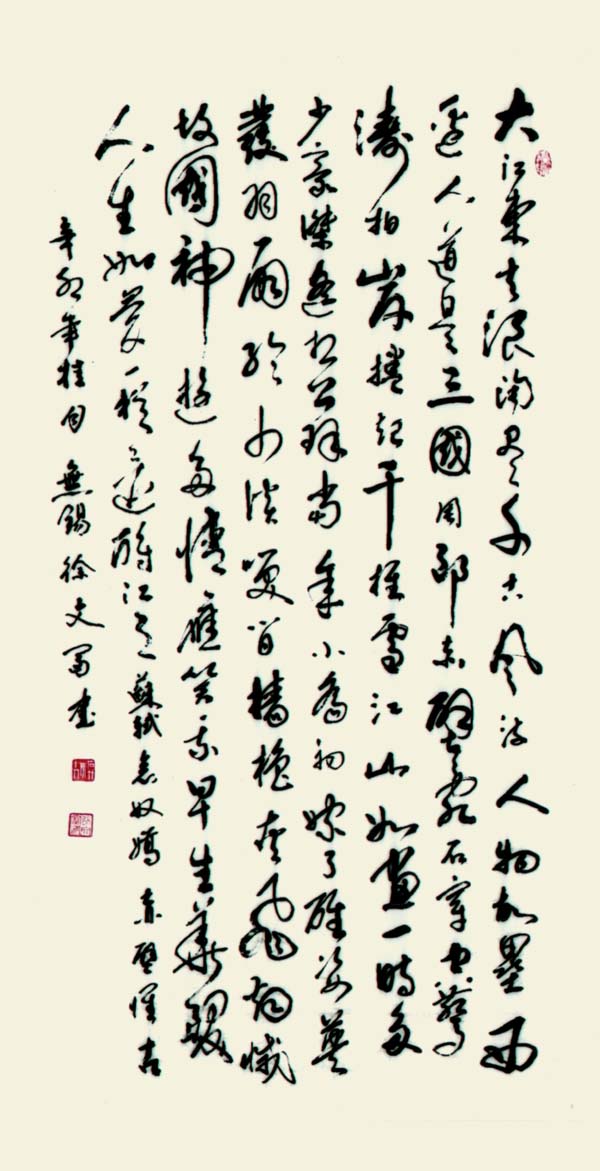 大江東去浪淘尽千古風流人物故壘西
邊人道是三國周郎赤壁亂石穿空驚
濤拍岸捲起千堆雪江山如畫一時多
少豪傑遙想公瑾當年小喬初嫁了雄姿英
發羽扇綸巾談笑間檣櫓灰飛煙滅
故國神遊多情應笑我早生華髮
人生如夢一樽還酹江月 蘇軾念奴嬌赤壁懷古
辛卯年桂月 無錫徐文书